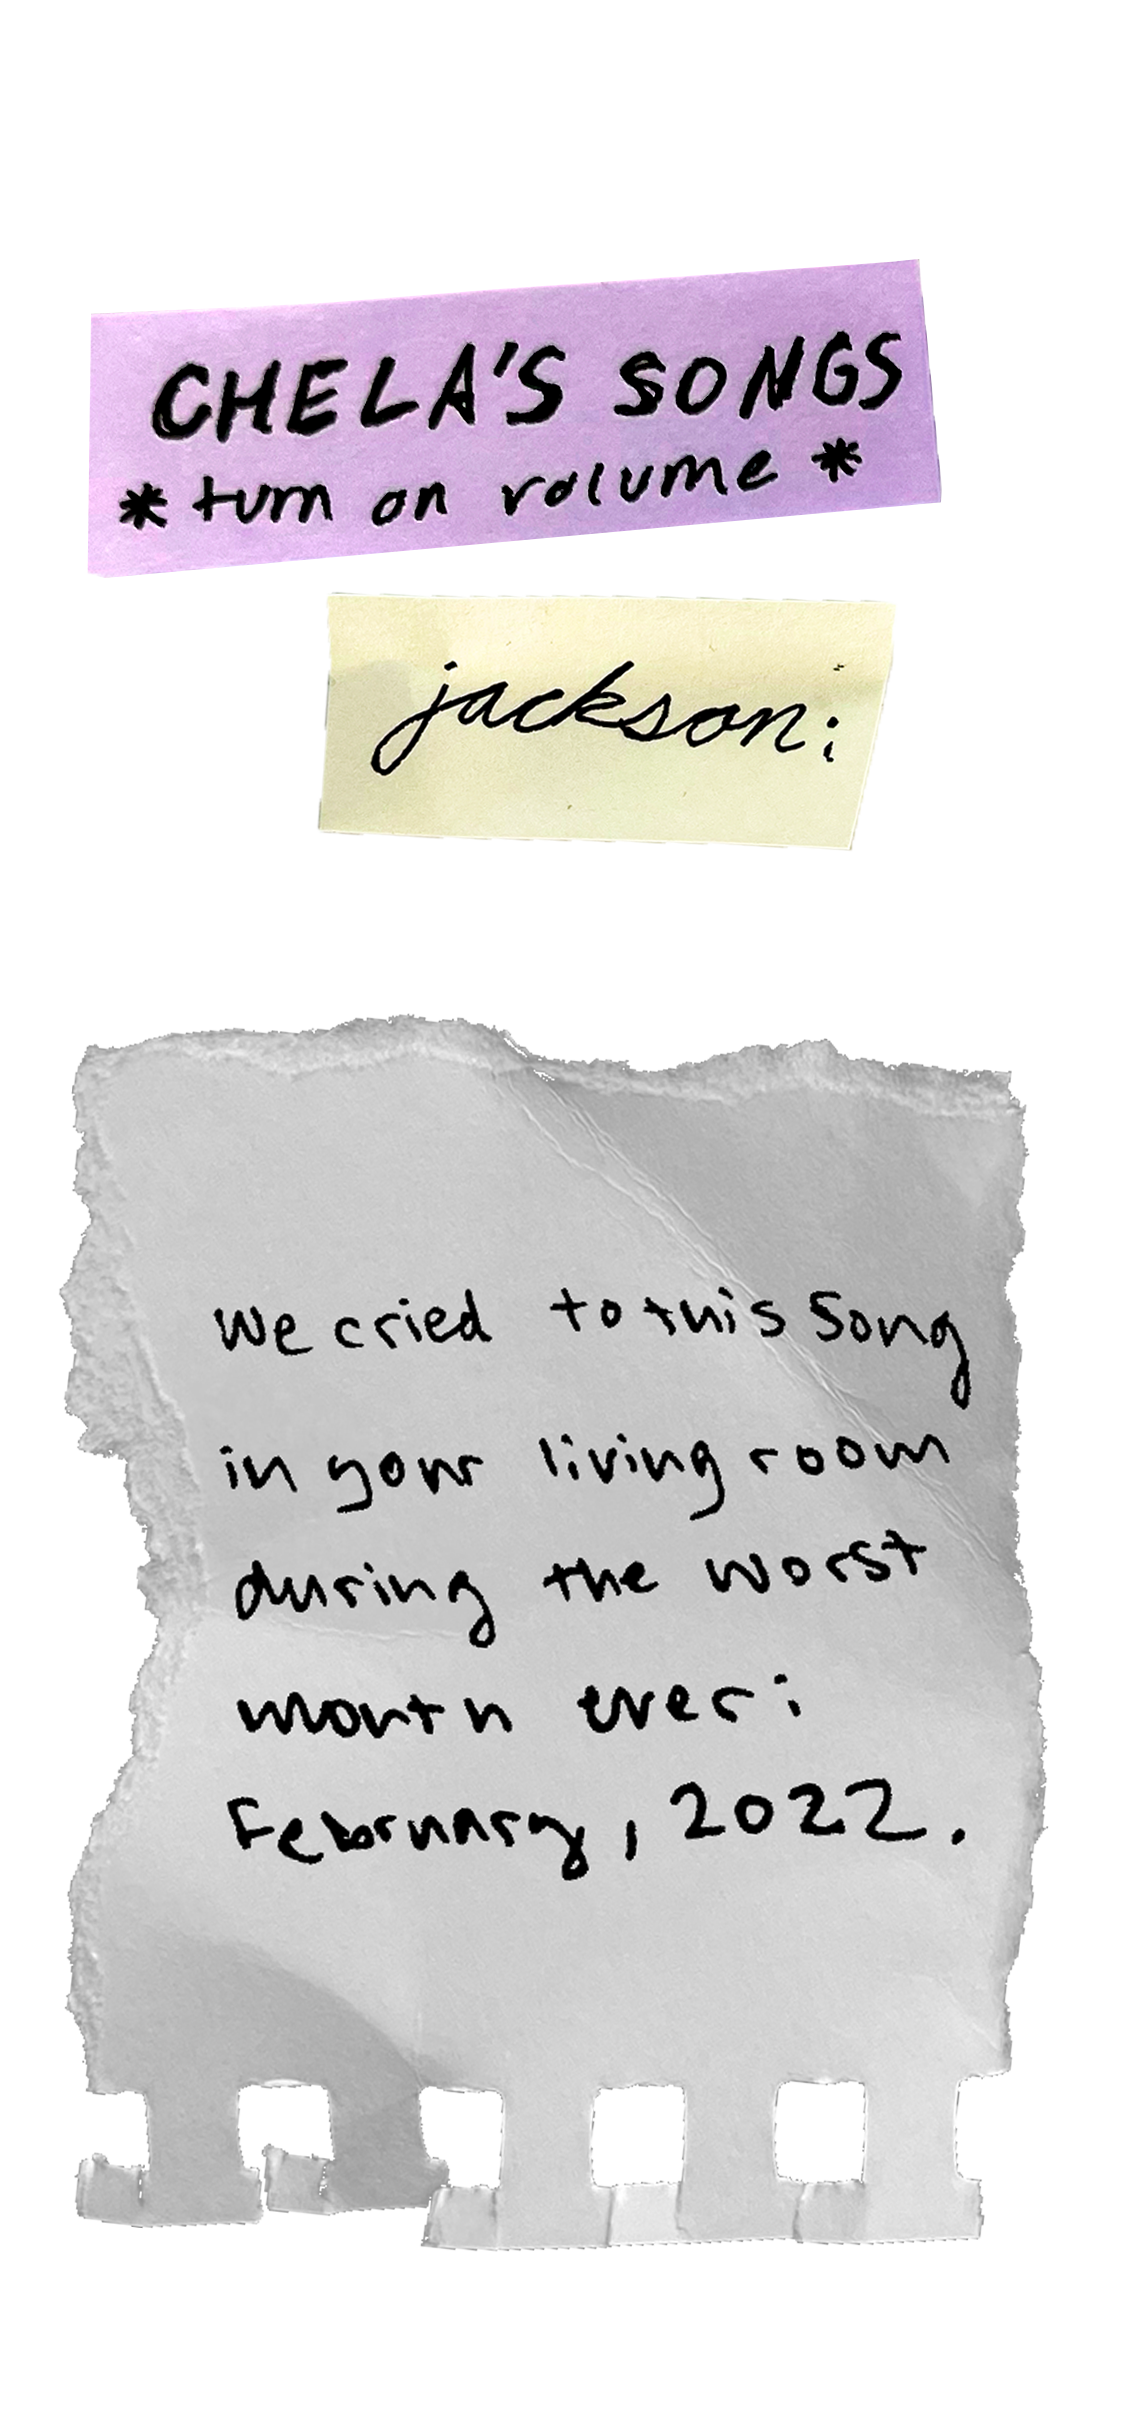 CHELA'S SONGS
* turn on volume *
jackson:
We cried to this Song
in your living room
during the worst
month ever:
February, 2022.